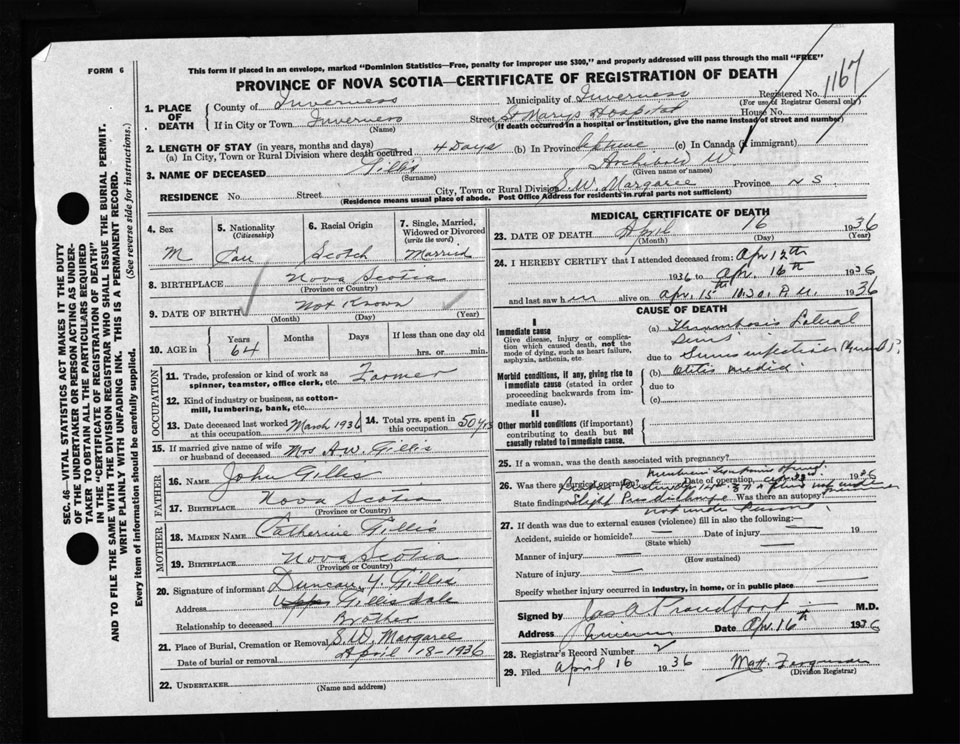 FORM 6
This form if placed in an envelope, marked "Dominion Statistics—Free, penalty for improper use $300," and properly addressed will pass through the mail "FREE"
PROVINCE OF NOVA SCOTIA—CERTIFICATE OF REGISTRATION OF DEATH
1167
Registered No.
(For use of Registrar General only)
1. PLACE OF DEATH
County of Inverness Municipality of Inverness
If in City or Town Inverness Street St Marys Hospital House No.
(Name) (If death occurred in a hospital or institution, give the name instead of street and number)
2. LENGTH OF STAY (in years, months and days)
(a) In City, Town or Rural Division where death occurred 4 Days (b) In Province (c) In Canada (if immigrant)
3. NAME OF DECEASED Gillis Archibald W
(Surname) (Given name or names)
RESIDENCE No. Street City, Town or Rural Division S.W. Margaree Province N S.
(Residence means usual place of abode. Post Office Address for residents in rural parts not sufficient)
4. Sex M
5. Nationality (Citizenship) Can
6. Racial Origin Scotch
7. Single, Married, Widowed or Divorced (write the word) Married
8. BIRTHPLACE Nova Scotia
(Province or Country)
9. DATE OF BIRTH Not Known
(Month) (Day) (Year)
10. AGE in Years 64 Months Days If less than one day old hrs. or min.
OCCUPATION
11. Trade, profession or kind of work as spinner, teamster, office clerk, etc. Farmer
12. Kind of industry or business, as cotton-mill, lumbering, bank, etc.
13. Date deceased last worked at this occupation March 1936
14. Total yrs. spent in this occupation 50 yrs
15. If married give name of wife or husband of deceased Mrs A W. Gillis
FATHER
16. NAME John Gillis
17. BIRTHPLACE Nova Scotia
(Province or Country)
MOTHER
18. MAIDEN NAME Catherine Gillis
19. BIRTHPLACE Nova Scotia
(Province or Country)
20. Signature of informant Duncan Y. Gillis
Address Gillisdale
Relationship to deceased Brother
21. Place of Burial, Cremation or Removal S.W. Margaree
Date of burial or removal April 18-1936
22. UNDERTAKER
(Name and address)
MEDICAL CERTIFICATE OF DEATH
23. DATE OF DEATH April 16 1936
(Month) (Day) (Year)
24. I HEREBY CERTIFY that I attended deceased from: Apr 12th
1936 to Apr. 16th 1936
and last saw him alive on Apr. 15th 10.30. P.M. 1936
CAUSE OF DEATH
I
Immediate cause
Give disease, injury or complication which caused death, not the mode of dying, such as heart failure, asphyxia, asthenia, etc.
(a) Thrombosis Lateral Sinus
due to Sinus infection
Morbid conditions, if any, giving rise to immediate cause (stated in order proceeding backwards from immediate cause).
(b) Otitis media
due to
(c)
II
Other morbid conditions (if important) contributing to death but not causally related to immediate cause.
25. If a woman, was the death associated with pregnancy?
26. Was there a surgical operation? Date of operation 1936
State findings Slight Was there an autopsy?
27. If death was due to external causes (violence) fill in also the following:—
Accident, suicide or homicide? Date of injury 19
(State which)
Manner of injury
(How sustained)
Nature of injury
Specify whether injury occurred in industry, in home, or in public place
Signed by Jas A. Proudfoot M.D.
Address Inverness Date Apr. 16th 1936
28. Registrar's Record Number
29. Filed April 16 1936 Matt. Ferguson
(Division Registrar)
SEC. 46—VITAL STATISTICS ACT MAKES IT THE DUTY
OF THE UNDERTAKER OR PERSON ACTING AS UNDER-
TAKER TO OBTAIN ALL THE PARTICULARS REQUIRED
IN THE "CERTIFICATE OF REGISTRATION OF DEATH"
AND TO FILE THE SAME WITH THE DIVISION REGISTRAR WHO SHALL ISSUE THE BURIAL PERMIT.
WRITE PLAINLY WITH UNFADING INK. THIS IS A PERMANENT RECORD.
Every item of information should be carefully supplied. (See reverse side for instructions.)